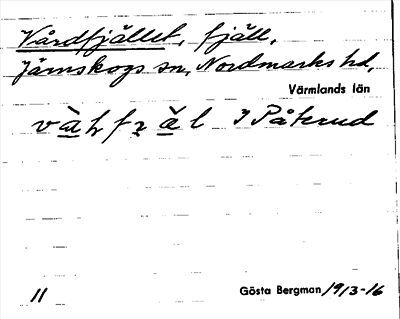 Vårdfjället, fjäll,
Järnskogs sn, Nordmarks hd,
Värmlands län
I Påterud
11 Gösta Bergman 1913-16